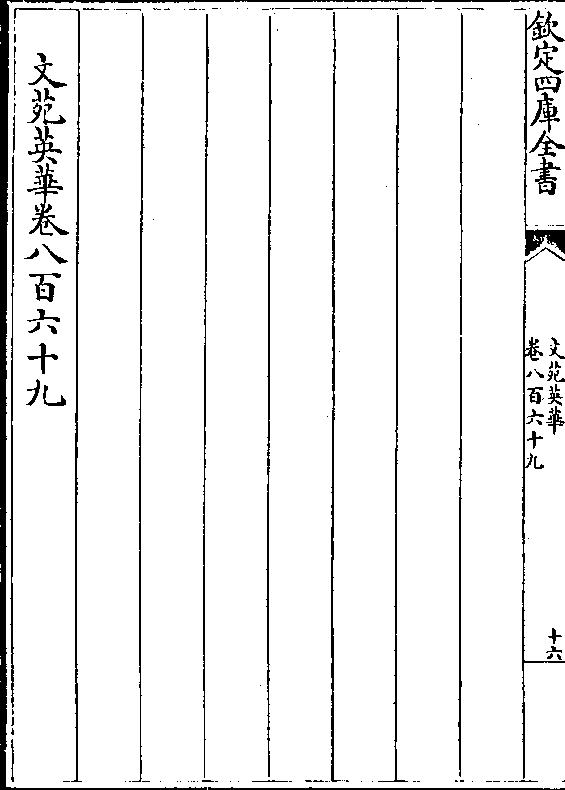 欽定四庫全書
文苑英華
卷八百六十九
十六
文苑英華卷八百六十九